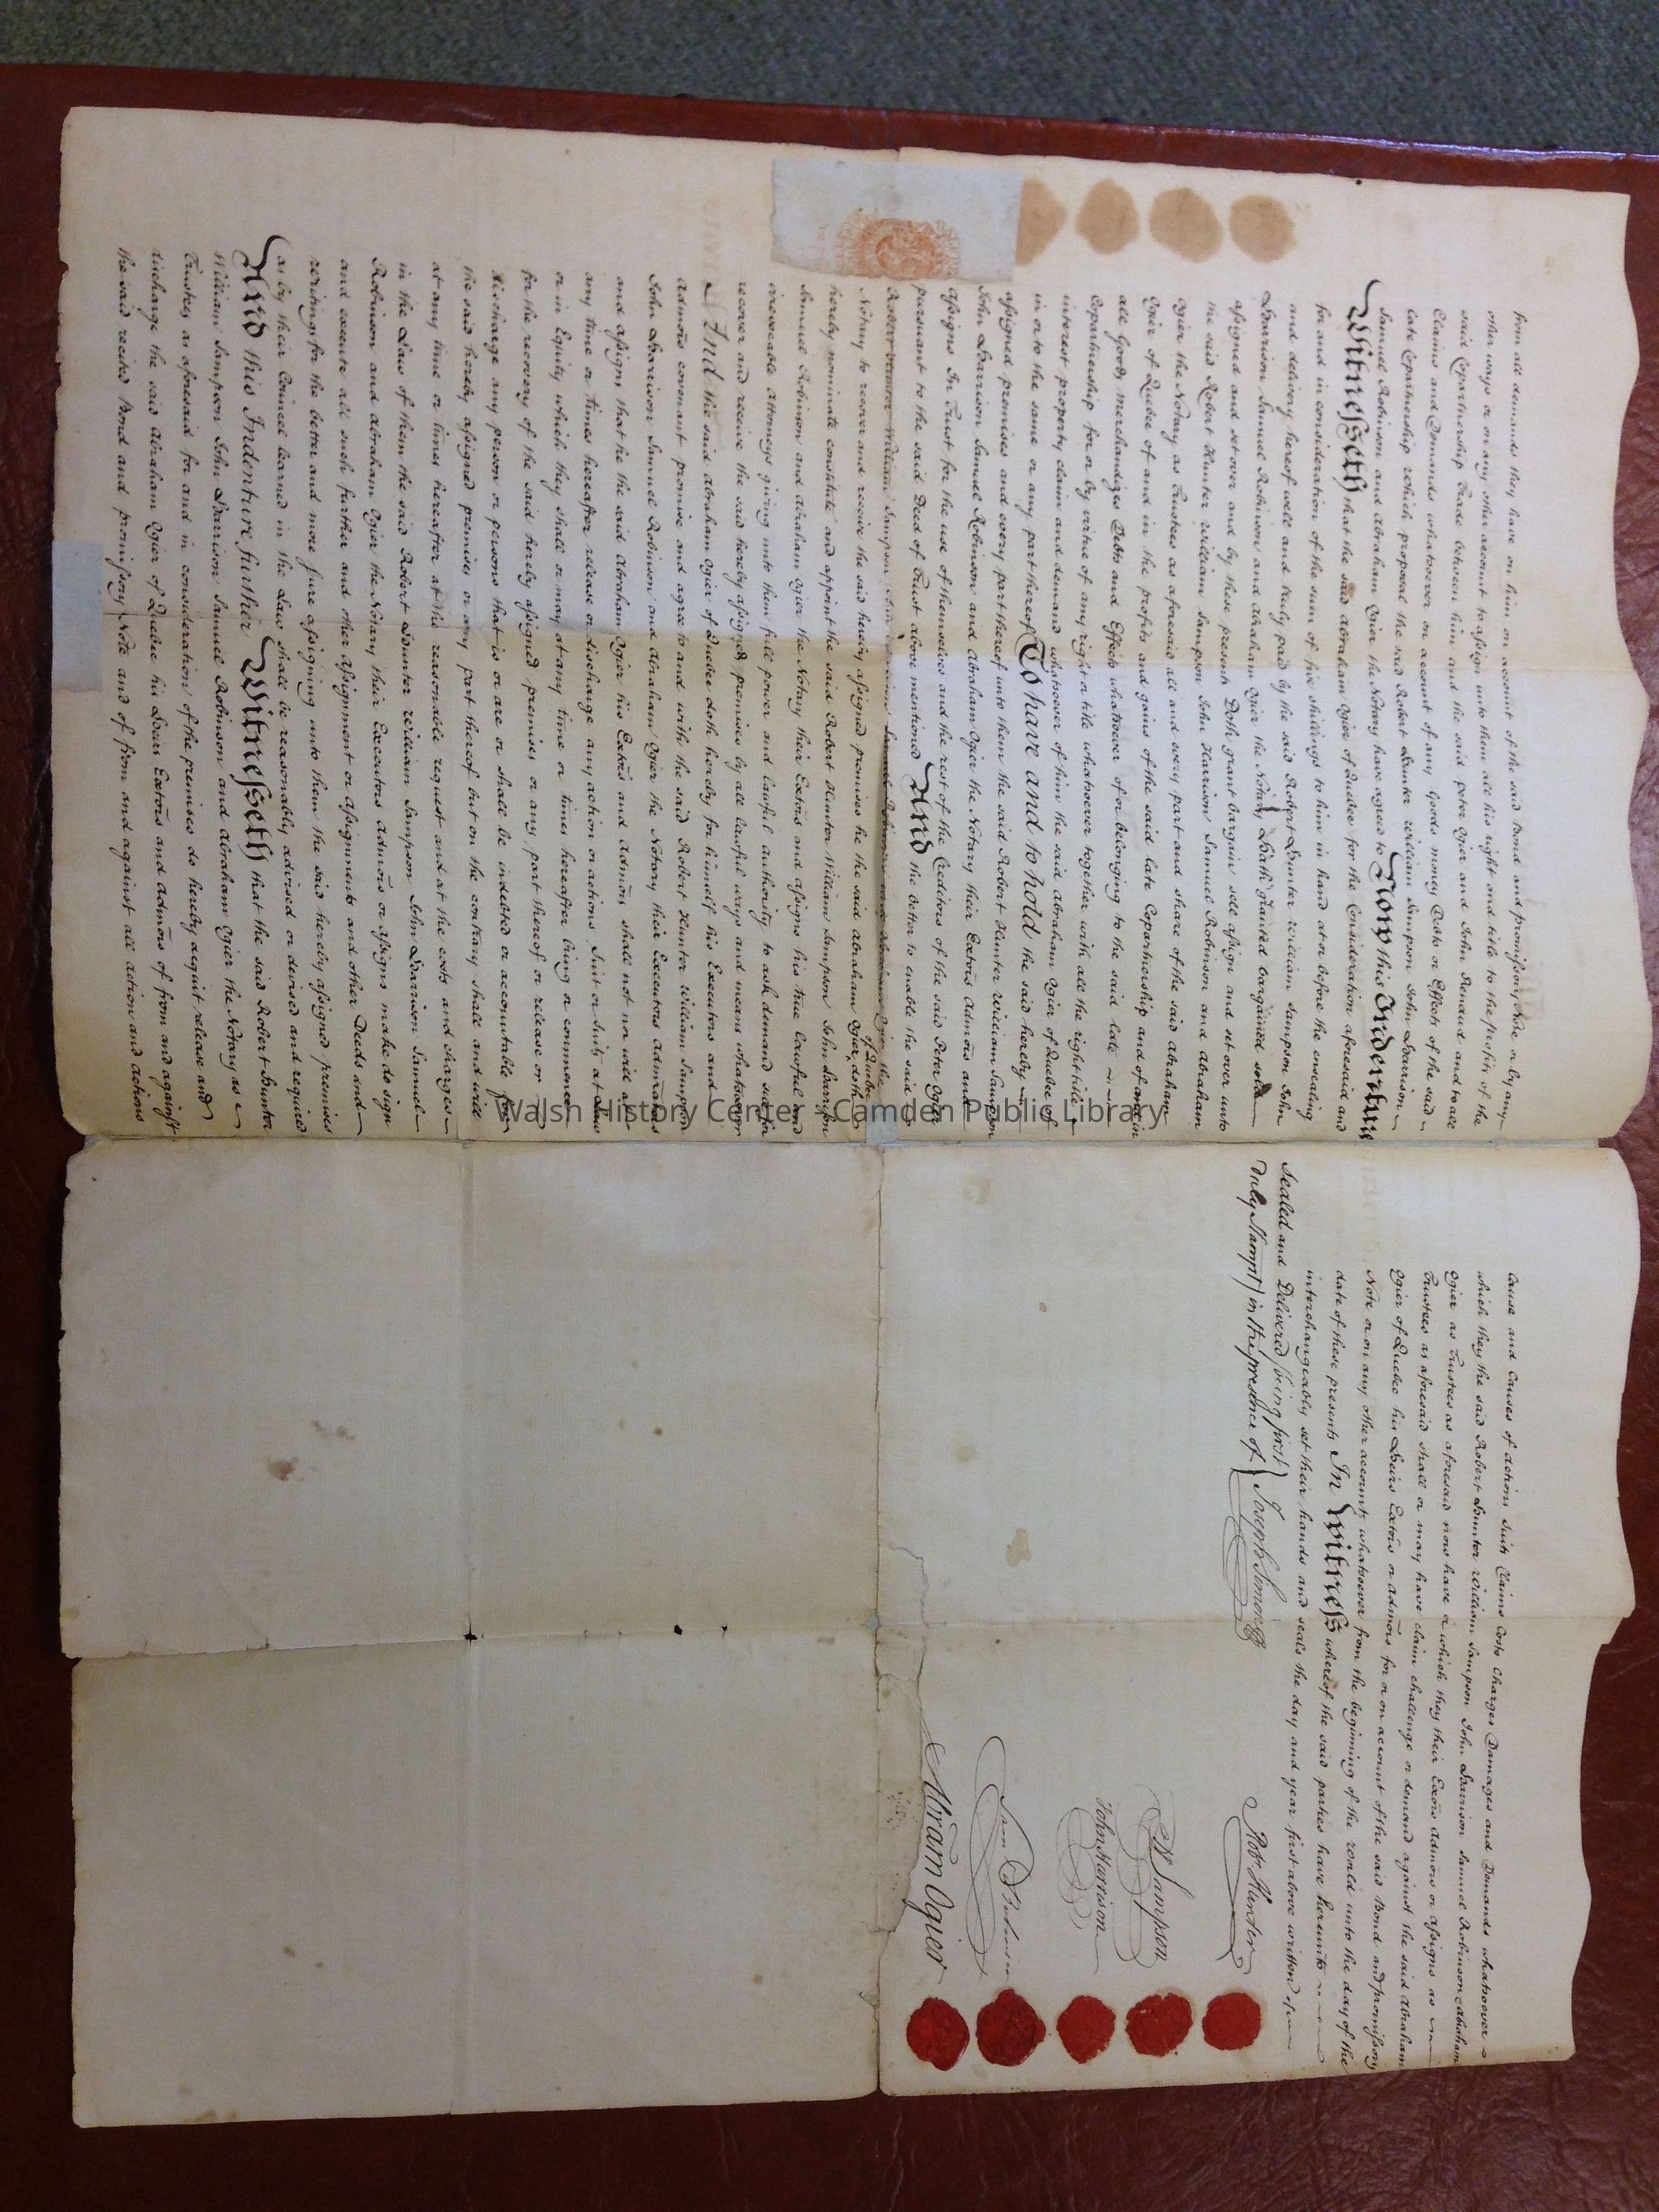 from all demands they have on him on account of the said Bond and promissory Note or by any
other ways or on any other account to assign unto them all his right and title to the profits of the
said Copartnership Trade between him and the said Peter Ogier and John Renaud and to all
Claims and Demands whatsoever on account of any Goods money Debts or Effects of the said
late Copartnership which proposal the said Robert Hunter William Sampson John Harrison
Samuel Robinson and Abraham Ogier the Notary have agreed to Now this Indenture
Witnesseth that the said Abraham Ogier of Quebec for the Consideration aforesaid and
for and in consideration of the sum of five shillings to him in hand at or before the ensealing
and delivery hereof well and truly paid by the said Robert Hunter William Sampson John
Harrison Samuel Robinson and Abraham Ogier the Notary Hath granted bargained sold
assigned and set over and by these presents Doth grant bargain sell assign and set over unto
the said Robert Hunter William Sampson John Harrison Samuel Robinson and Abraham
Ogier the Notary as Trustees as aforesaid all and every part and share of the said Abraham
Ogier of Quebec of and in the profits and gains of the said late Copartnership and of and in
all Goods Merchandizes Debts and Effects whatsoever of or belonging to the said late
Copartnership for or by virtue of any right or title whatsoever together with all the right title
interest property claim and demand whatsoever of him the said Abraham Ogier of Quebec of
in or to the same or any part thereof To have and to hold the said hereby
assigned premises and every part thereof unto them the said Robert Hunter William Sampson
John Harrison Samuel Robinson and Abraham Ogier the Notary their Exōrs Admōrs and
assigns In Trust for the use of themselves and the rest of the Creditors of the said Peter Ogier
pursuant to the said Deed of Trust above mentioned And the better to enable the said
Robert Hunter William Sampson John Harrison Samuel Robinson and Abraham Ogier the
Notary to recover and receive the said hereby assigned premises he the said Abraham Ogier of Quebec doth
hereby nominate constitute and appoint the said Robert Hunter William Sampson John Harrison
Samuel Robinson and Abraham Ogier the Notary their Exōrs and assigns his true lawful and
irrevocable attorneys giving unto them full power and lawful authority to ask demand sue for
recover and receive the said hereby assigned premises by all lawful ways and means whatsoever
And the said Abraham Ogier of Quebec doth hereby for himself his Executors and
Admōrs covenant promise and agree to and with the said Robert Hunter William Sampson
John Harrison Samuel Robinson and Abraham Ogier the Notary their Executors admōrs
and assigns that he the said Abraham Ogier his Exōrs and Admōrs shall not nor will at
any time or times hereafter release or discharge any action or actions Suit or Suits at Law
or in Equity which they shall or may at any time or times hereafter bring or commence
for the recovery of the said hereby assigned premises or any part thereof or release or
discharge any person or persons that is or are or shall be indebted or accountable for
the said hereby assigned premises or any part thereof but on the contrary shall and will
at any time or times hereafter at the reasonable request and at the costs and charges
in the Law of them the said Robert Hunter William Sampson John Harrison Samuel
Robinson and Abraham Ogier the Notary their Executors admōrs or assigns make do sign
and execute all such further and other assignment or assignments and other Deeds and
writings for the better and more sure assigning unto them the said hereby assigned premises
as by their Councel learned in the Law shall be reasonably advised or devised and required
And this Indenture further Witnesseth that the said Robert Hunter
William Sampson John Harrison Samuel Robinson and Abraham Ogier the Notary as
Trustees as aforesaid for and in consideration of the premises do hereby acquit release and
discharge the said Abraham Ogier of Quebec his Heirs Exōrs and Admōrs of from and against
the said recited Bond and promissory Note and of from and against all action and actions
cause and causes of actions suits Claims Costs charges Damages and Demands whatsoever
which they the said Robert Hunter William Sampson John Harrison Samuel Robinson & Abraham
Ogier as Trustees as aforesaid now have or which they their Exōrs Admōrs or assigns as
Trustees as aforesaid shall or may have claim challenge or demand against the said Abraham
Ogier of Quebec his Heirs Exōrs or admōrs for or on account of the said Bond and promissory
Note or on any other account whatsoever from the beginning of the world unto the day of the
date of these presents In Witness whereof the said parties have hereunto
interchangeably set their hands and seals the day and year first above written
Sealed and Delivered (being first
duly stampt) in the presence of
Joseph
Robt Hunter
W Sampson
John Harrison
Sam Robinson
Abram Ogier
Walsh History Center - Camden Public Library